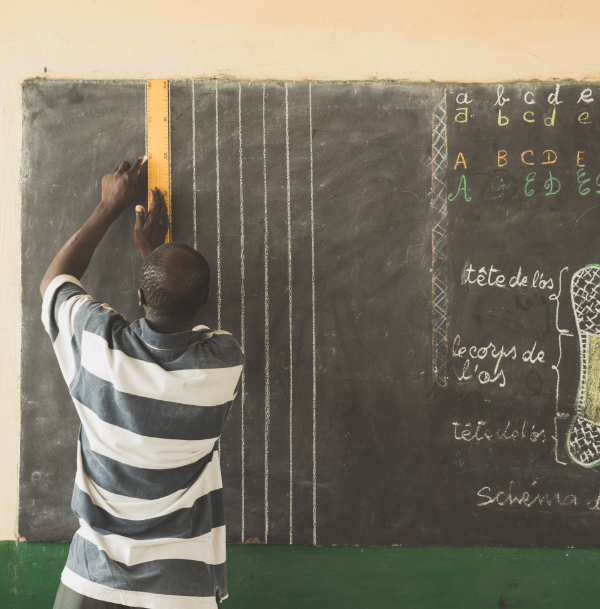 a b c d e
a b c d e
A B C D E
A C E D E
tête de l'os
le corps de
l'os
tête de l'os
Schéma d